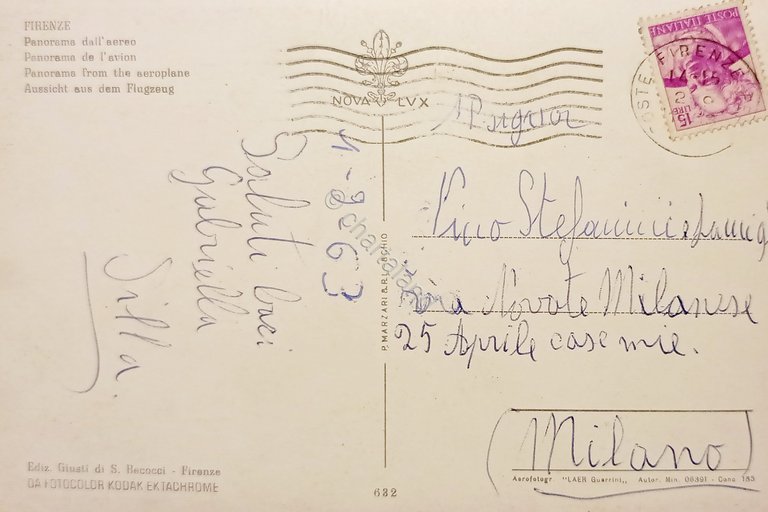 FIRENZE
Panorama dall'aereo
Panorama de l'avion
Panorama from the aeroplane
Aussicht aus dem Flugzeug
NOVA LVX
POSTE ITALIANE
15 LIRE
FIRENZE
1-9-63
Saluti baci
Gabriella
Silla.
Stefanini e
Via Novate Milanese
25 Aprile case mie.
Milano
P. MARZARI
SCHIO
Ediz. Giusti di S. Becocci - Firenze
DA FOTOCOLOR KODAK EKTACHROME
632
Aerofotogr. "LAER Guarrini,, Autor. Min. 06391 - Conc 183